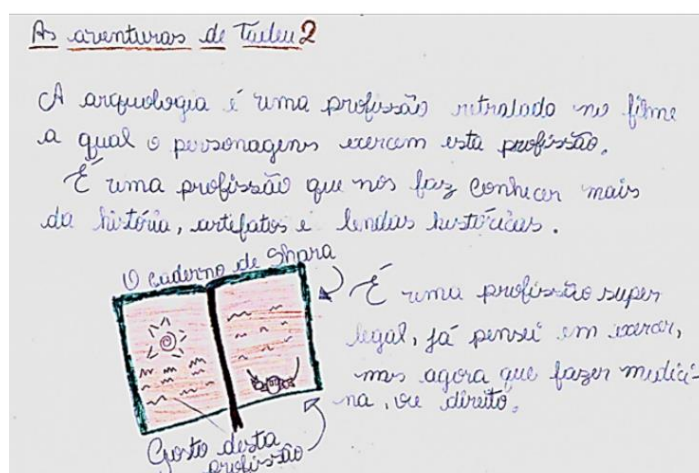 As aventuras de Tadeu 2
A arqueologia é uma profissão retralado no filme
a qual o personagens exercem esta profissão.
É uma profissão que nós faz conhecer mais
da história, artefatos e lendas históricas.
O caderno de Shara
É uma profissão super
legal, já pensei em exercer,
mas agora que fazer medici-
na, ou direito.
Gosto desta
profissão